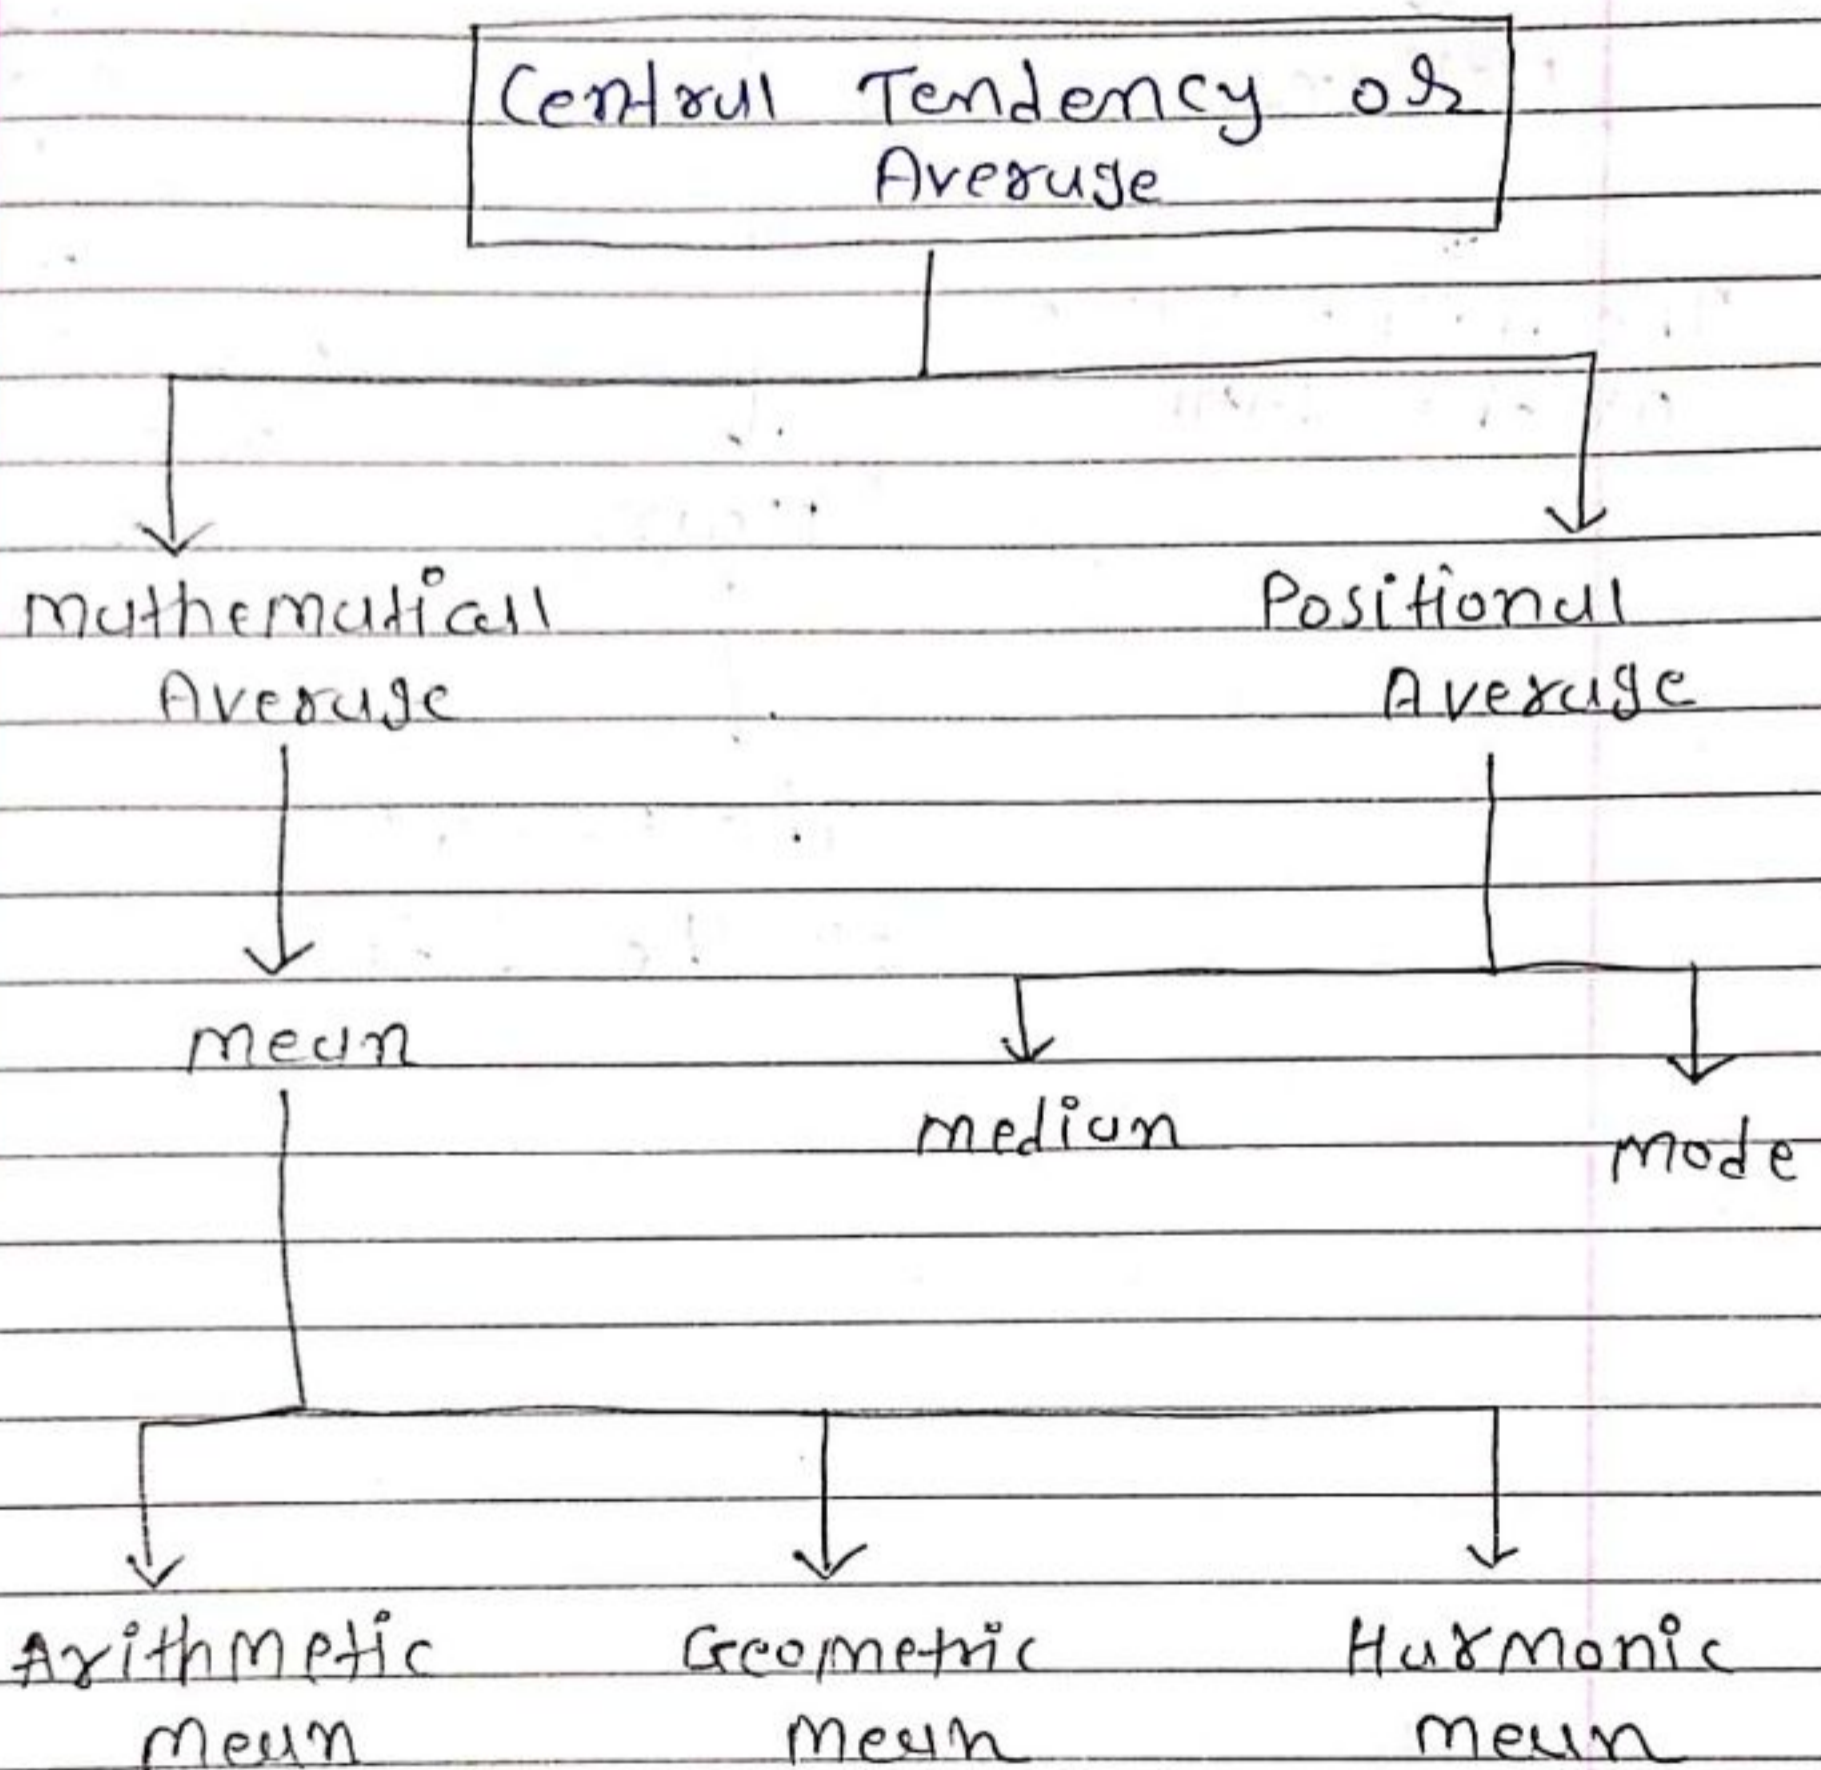 Central Tendency or
Average
Mathematical
Average
Positional
Average
Mean
Median
Mode
Arithmetic
Mean
Geometric
Mean
Harmonic
Mean